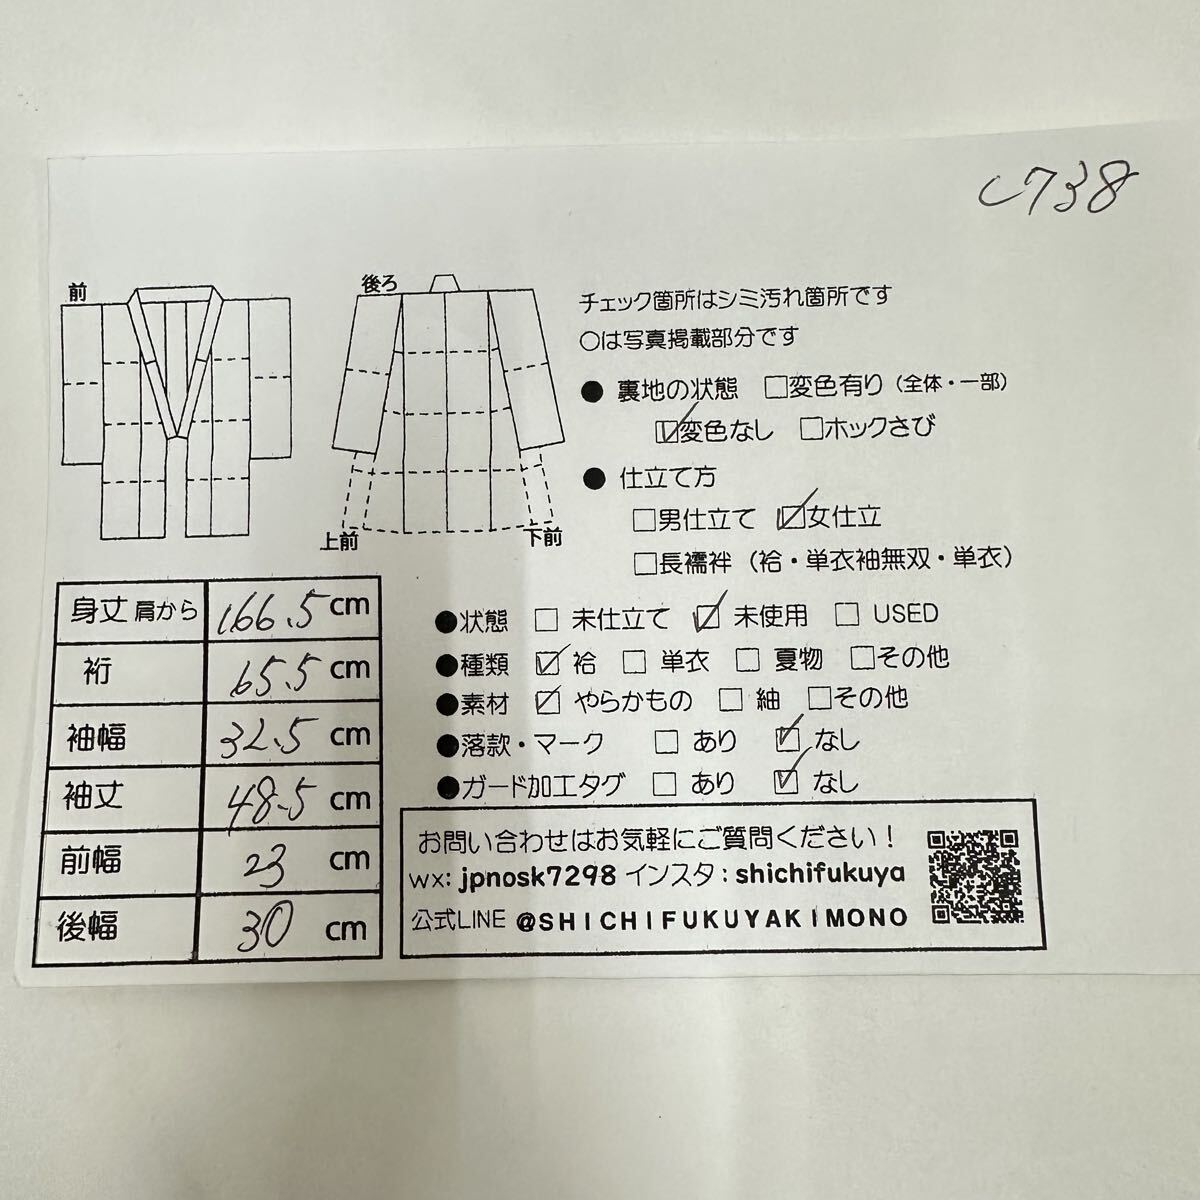 C738
前
後ろ
上前
下前
チェック箇所はシミ汚れ箇所です
○は写真掲載部分です
● 裏地の状態 □変色有り（全体・一部）
☑変色なし □ホックさび
● 仕立て方
□男仕立て ☑女仕立
□長襦袢（袷・単衣袖無双・単衣）
●状態 □ 未仕立て ☑ 未使用 □ USED
●種類 ☑ 袷 □ 単衣 □ 夏物 □その他
●素材 ☑ やらかもの □ 紬 □その他
●落款・マーク □ あり ☑ なし
●ガード加工タグ □ あり ☑ なし
身丈 肩から 166.5 cm
裄 65.5 cm
袖幅 32.5 cm
袖丈 48.5 cm
前幅 23 cm
後幅 30 cm
お問い合わせはお気軽にご質問ください！
wx: jpnosk7298 インスタ：shichifukuya
公式LINE @SHICHIFUKUYAKIMONO